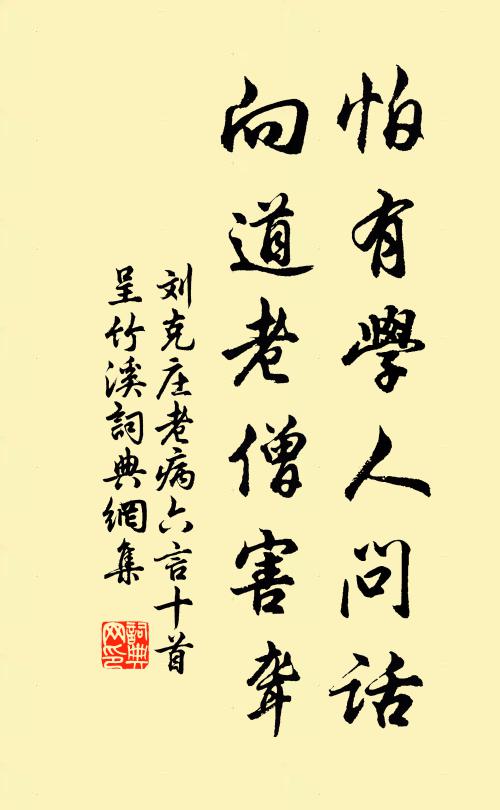 怕有學人问话
向道老僧害聋
刘克庄老病六言十首
呈竹溪詞典網集
詞典
网印